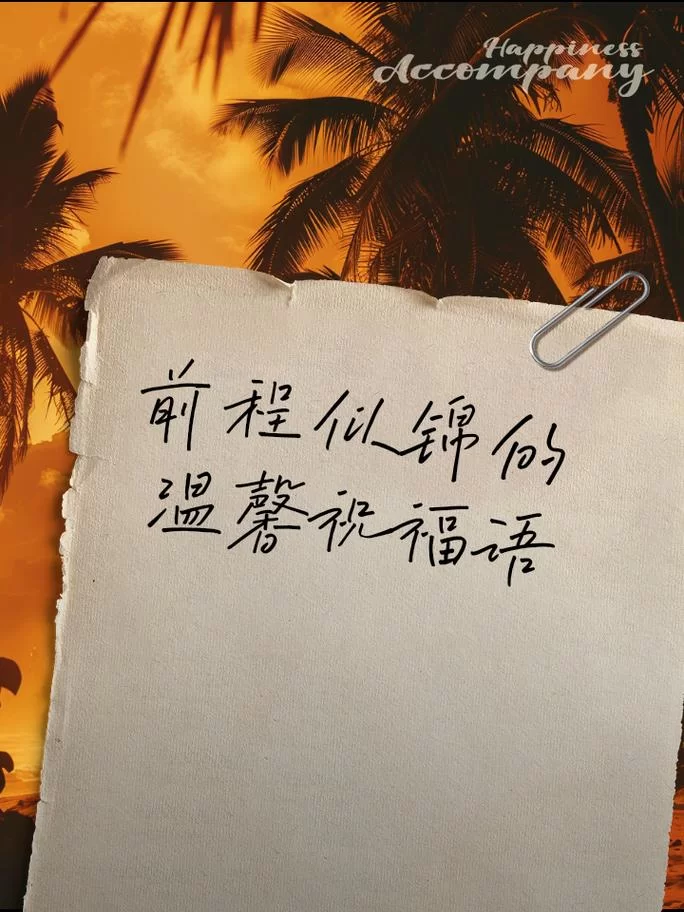 Happiness
Accompany
前程似锦的
温馨祝福语